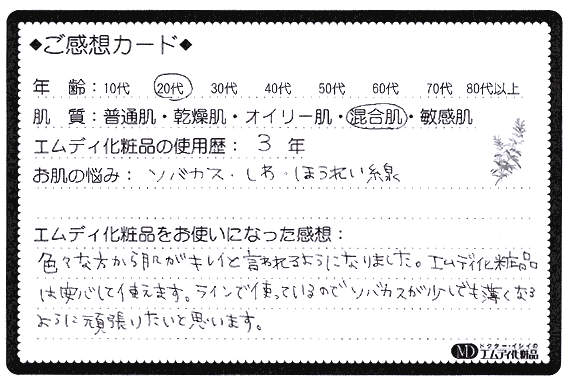 ◆ご感想カード◆
年 齢：10代 20代 30代 40代 50代 60代 70代 80代以上
肌 質：普通肌・乾燥肌・オイリー肌・混合肌・敏感肌
エムディ化粧品の使用歴：3年
お肌の悩み：ソバカス・しわ・ほうれい線
エムディ化粧品をお使いになった感想：
色々な方から肌がキレイと言われるようになりました。エムディ化粧品
は安心して使えます。ラインで使っているのでソバカスが少しでも薄くなる
ように頑張りたいと思います。
MD ドクター・イシイの
エムディ化粧品